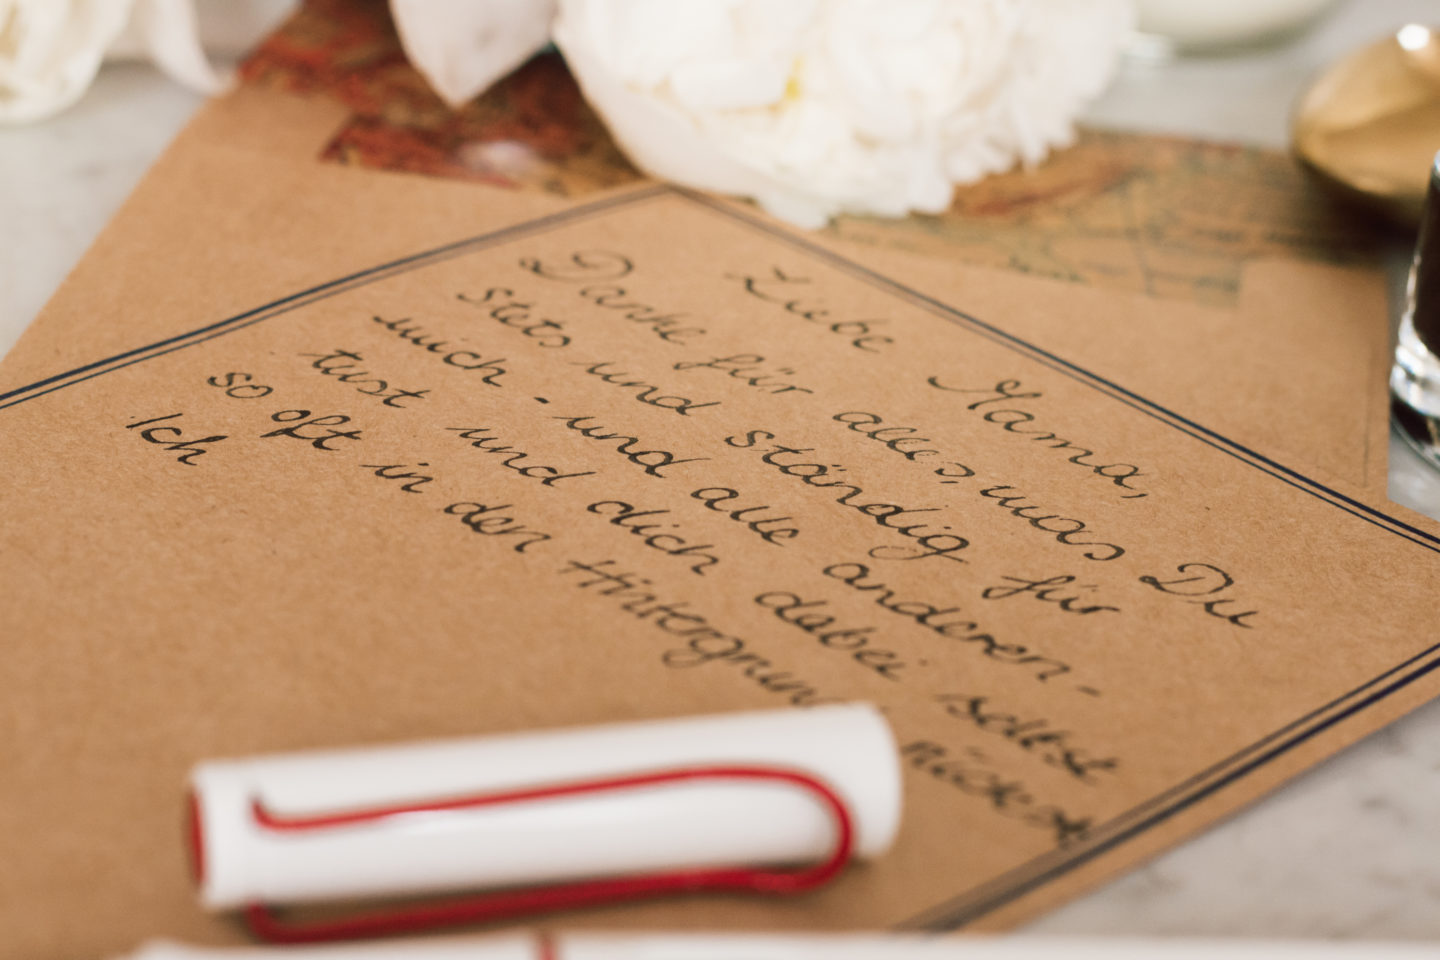 Liebe Mama,
Danke für alles, was Du
stets und ständig für
mich - und alle anderen -
tust und dich dabei selbst
so oft in den Hintergrun
Ich